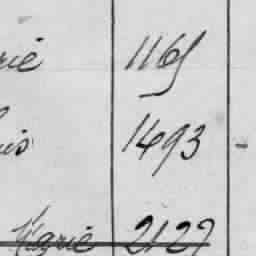 rie 1165
uis 1493 -
Marie 2127